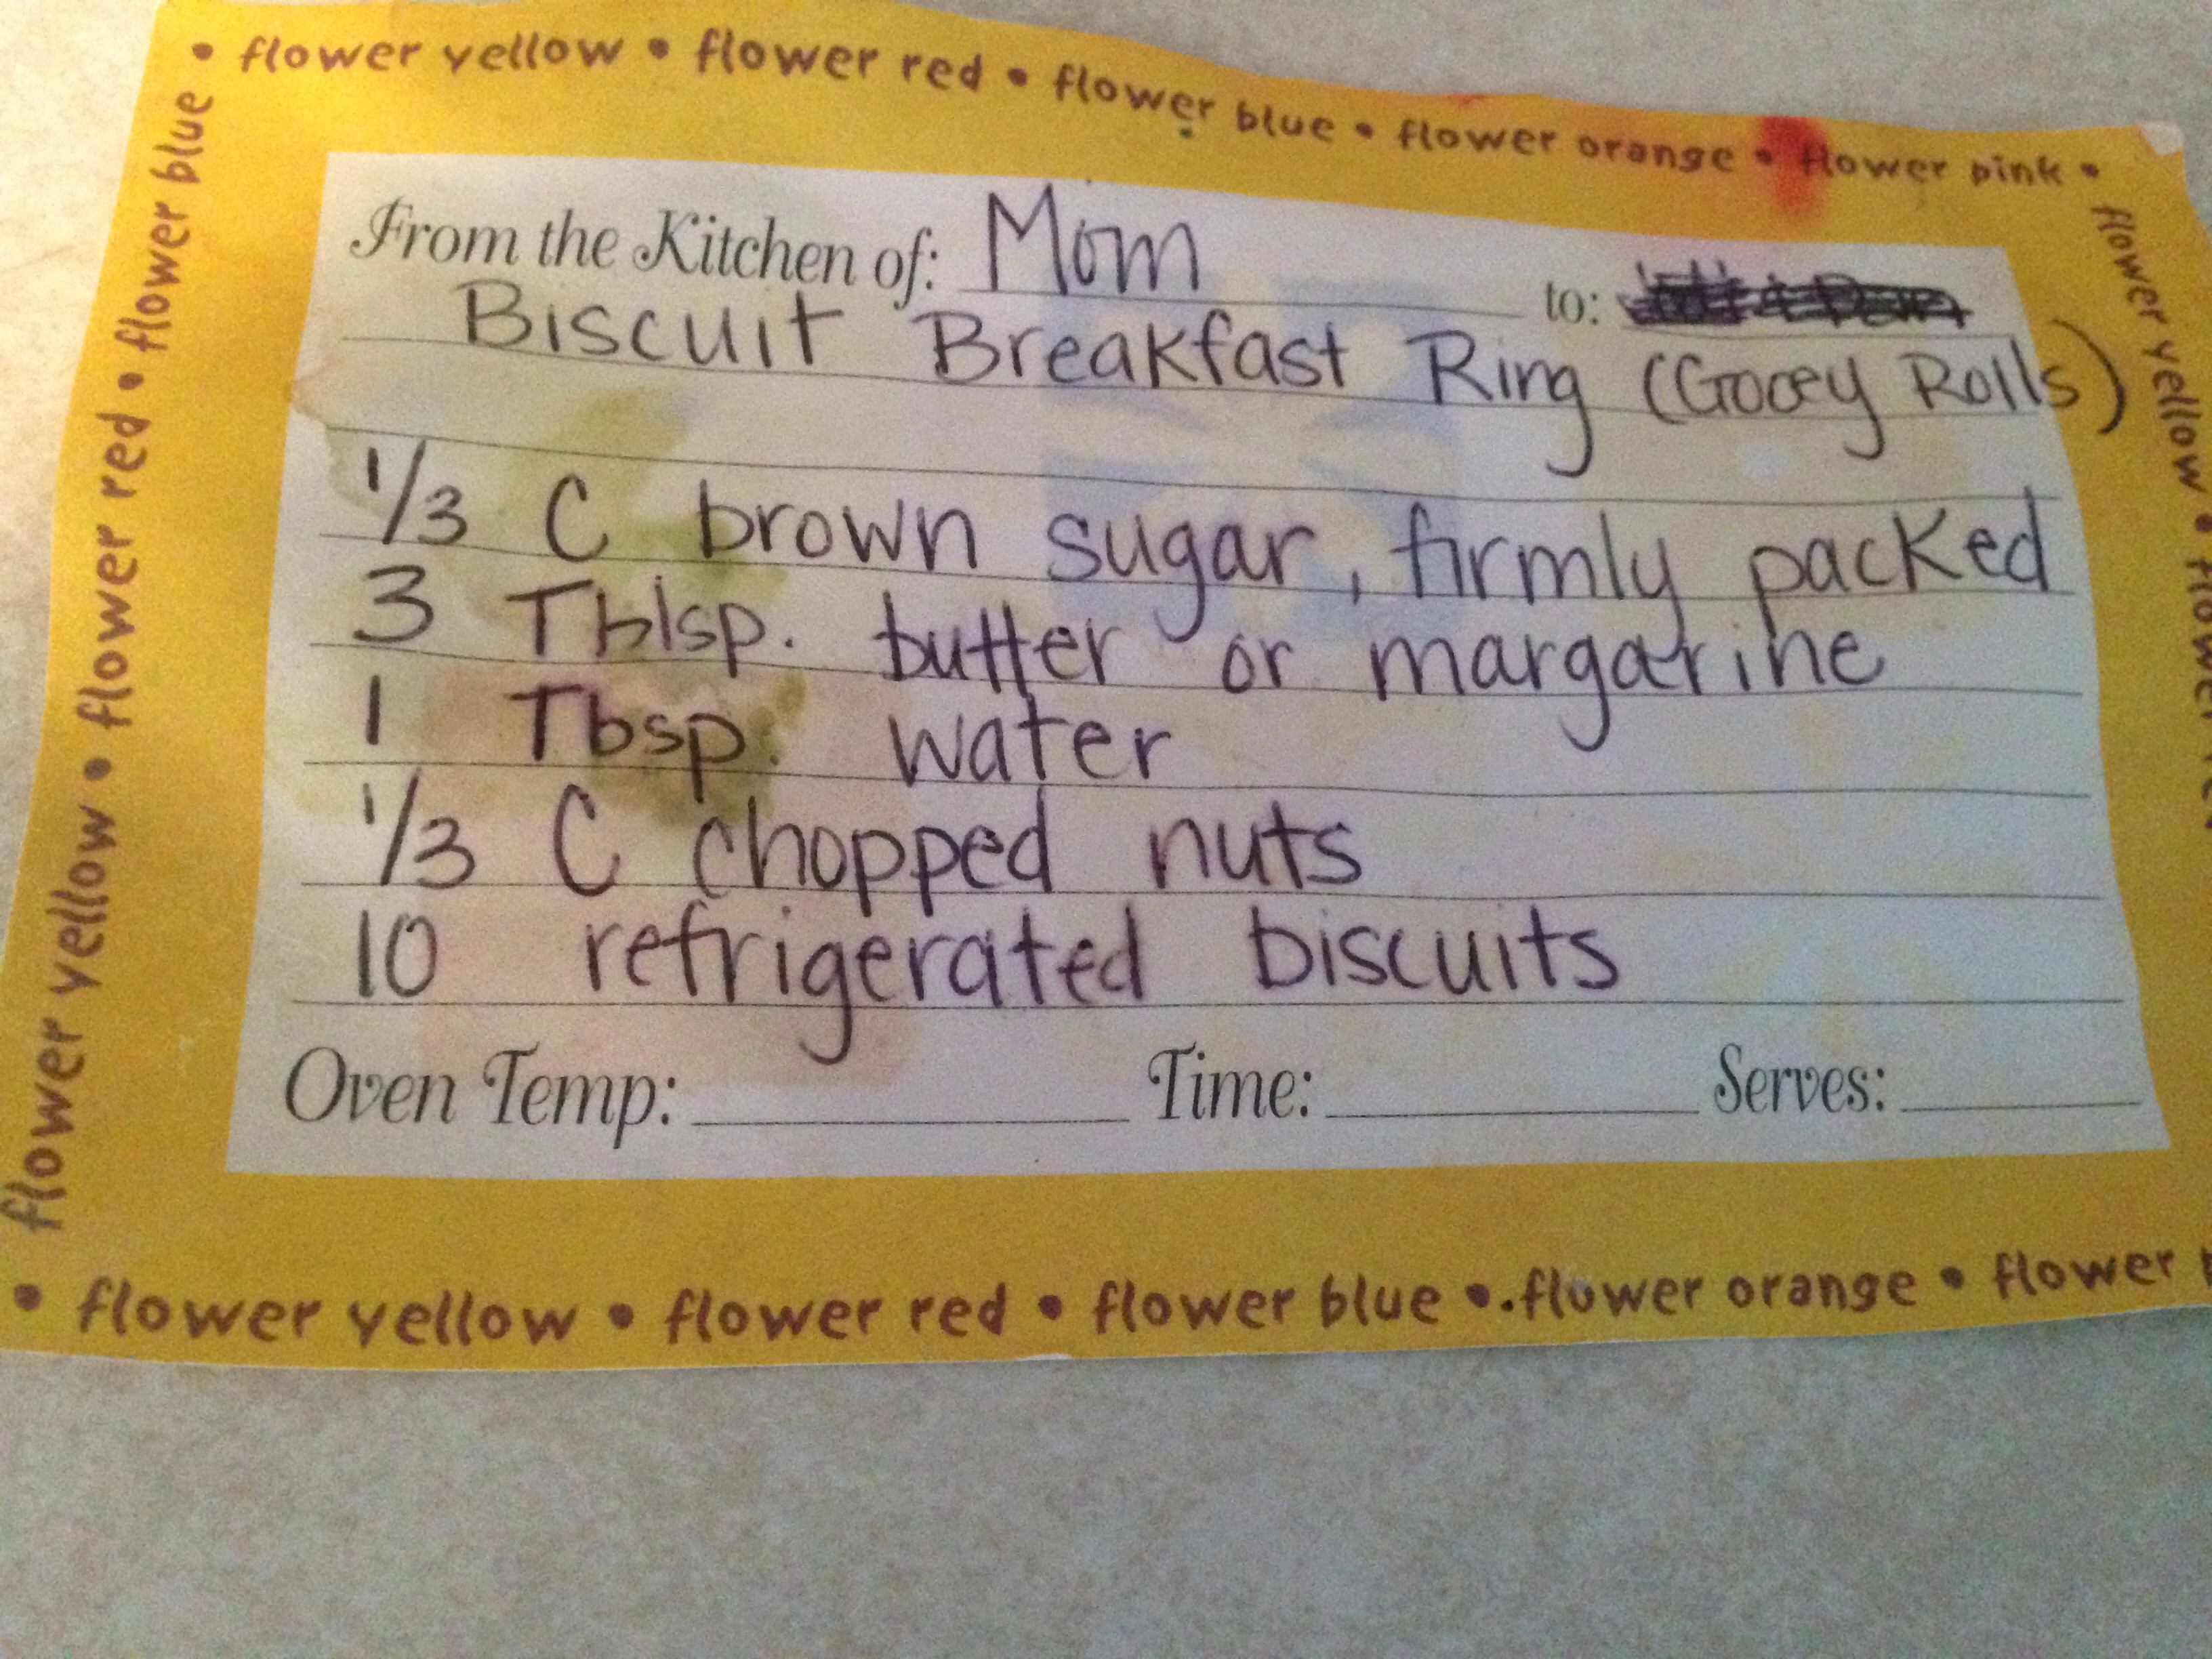 • flower yellow • flower red • flower blue • flower orange • flower pink •
flower yellow • flower red • flower blue
flower yellow • flower
From the Kitchen of: Mom to:
Biscuit Breakfast Ring (Gooey Rolls)
1/3 C brown sugar, firmly packed
3 Tblsp. butter or margarine
1 Tbsp. water
1/3 C chopped nuts
10 refrigerated biscuits
Oven Temp: Time: Serves:
• flower yellow • flower red • flower blue • flower orange • flower